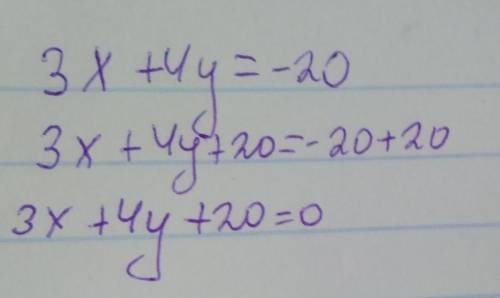 3x + 4y = -20
3x + 4y + 20 = -20 + 20
3x + 4y + 20 = 0